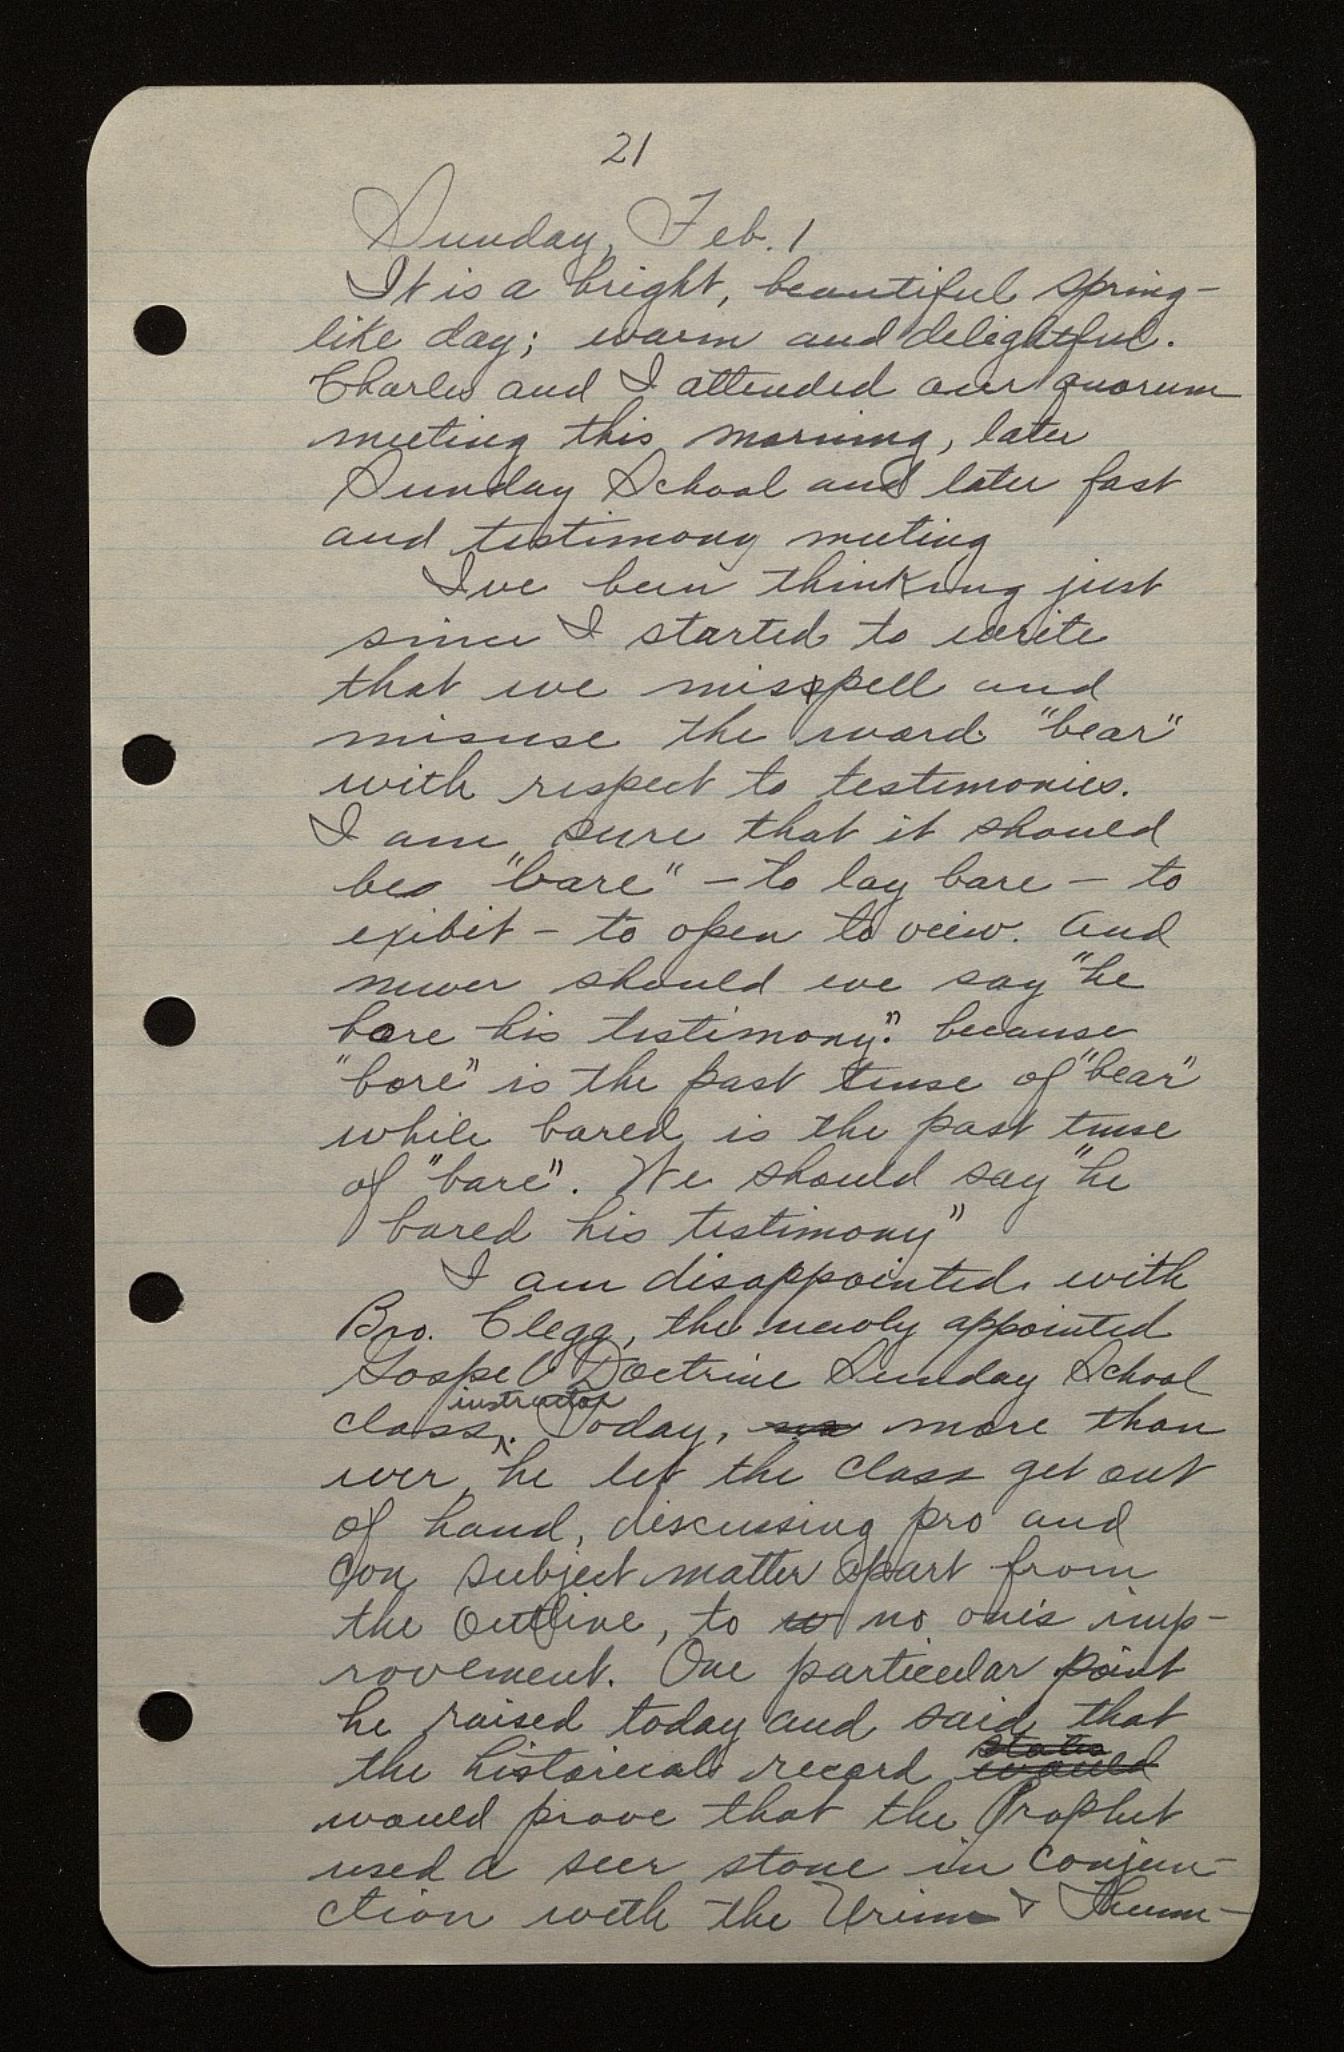 21
Sunday, Feb. 1
It is a bright, beautiful spring-
like day; warm and delightful.
Charles and I attended our quorum
meeting this morning, later
Sunday School and later fast
and testimony meeting
I've been thinking just
since I started to write
that we misspell and
misuse the word "bear"
with respect to testimonies.
I am sure that it should
be "bare" - to lay bare - to
exibit - to open to veiw. And
never should we say "he
bore his testimony". because
"bore" is the past tense of "bear"
while bared is the past tense
of "bare". We should say "he
bared his testimony"
I am disappointed with
Bro. Clegg, the newly appointed
Gospel Doctrine Sunday School
class instructor. Today, more than
ever, he let the class get out
of hand, discussing pro and
con subject matter apart from
the outline, to no one's imp-
rovement. One particular point
he raised today and said that
the historical record states would
would prove that the Prophet
used a seer stone in conjun-
ction with the Urim & Thumm-